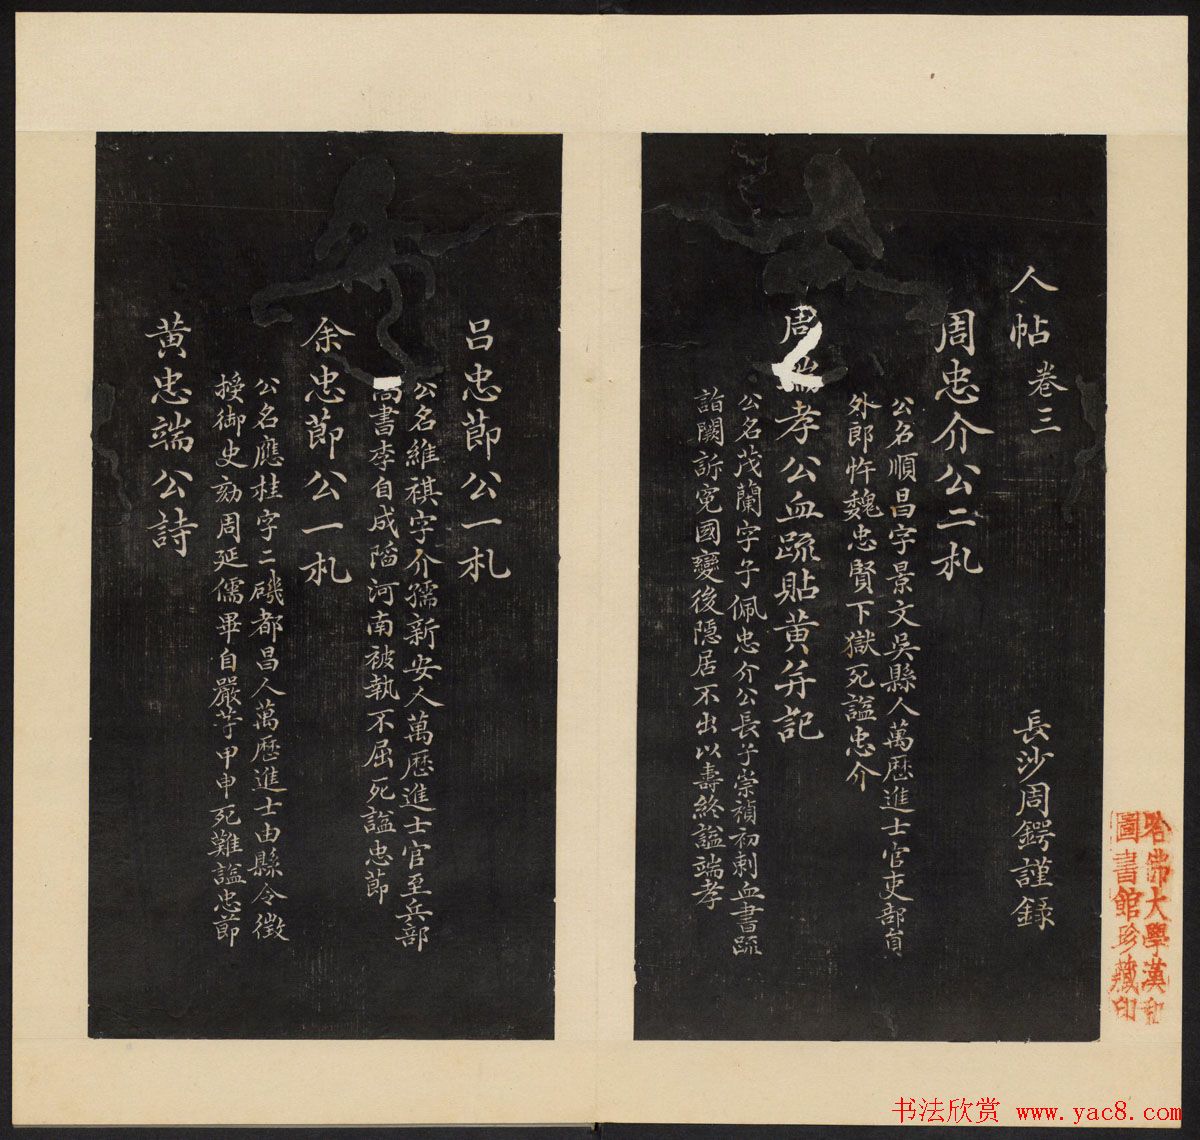 人帖 卷三 長沙周鍔謹録
周忠介公二札
公名順昌字景文吳縣人萬歷進士官吏部員
外郎忤魏忠賢下獄死諡忠介
周 孝公血疏貼黃并記
公名茂蘭字子佩忠介公長子崇禎初刺血書疏
詣闕訴冤國變後隱居不出以壽終諡端孝
吕忠節公一札
公名維祺字介孺新安人萬歷進士官至兵部
尚書李自成陷河南被執不屈死諡忠節
余忠節公一札
公名應桂字二磯都昌人萬歷進士由縣令徵
授御史劾周延儒畢自嚴等甲申死難諡忠節
黃忠端公詩
哈佛大學漢和
圖書館珍藏印
书法欣赏 www.yac8.com